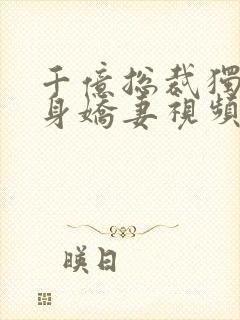 千億總裁獨
身嬌妻視頻
暎日